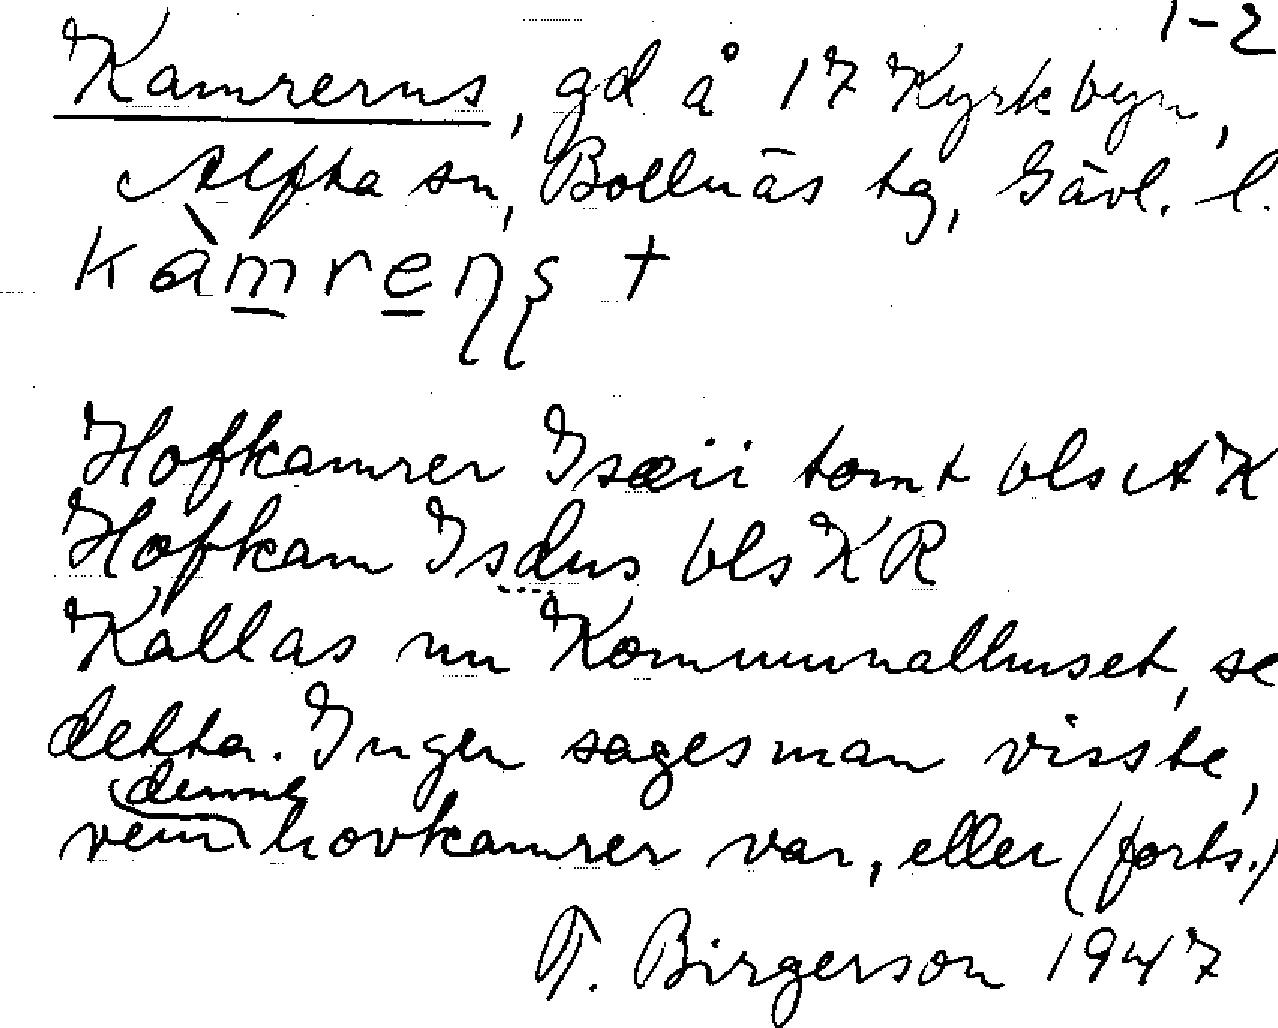 1-2
Kamrerns, gd å 17 Kyrkbyn,
Alfta sn, Bollnäs tg, Gävl. l.
kàmreṇṣ +
Hofkamrer Isæii tomt bls AK
Hofkam Isæus bls KR
Kallas nu Kommunalhuset, se
detta. Ingen sagesman visste,
vem denne hovkamrer var, eller (forts.)
T. Birgerson 1947